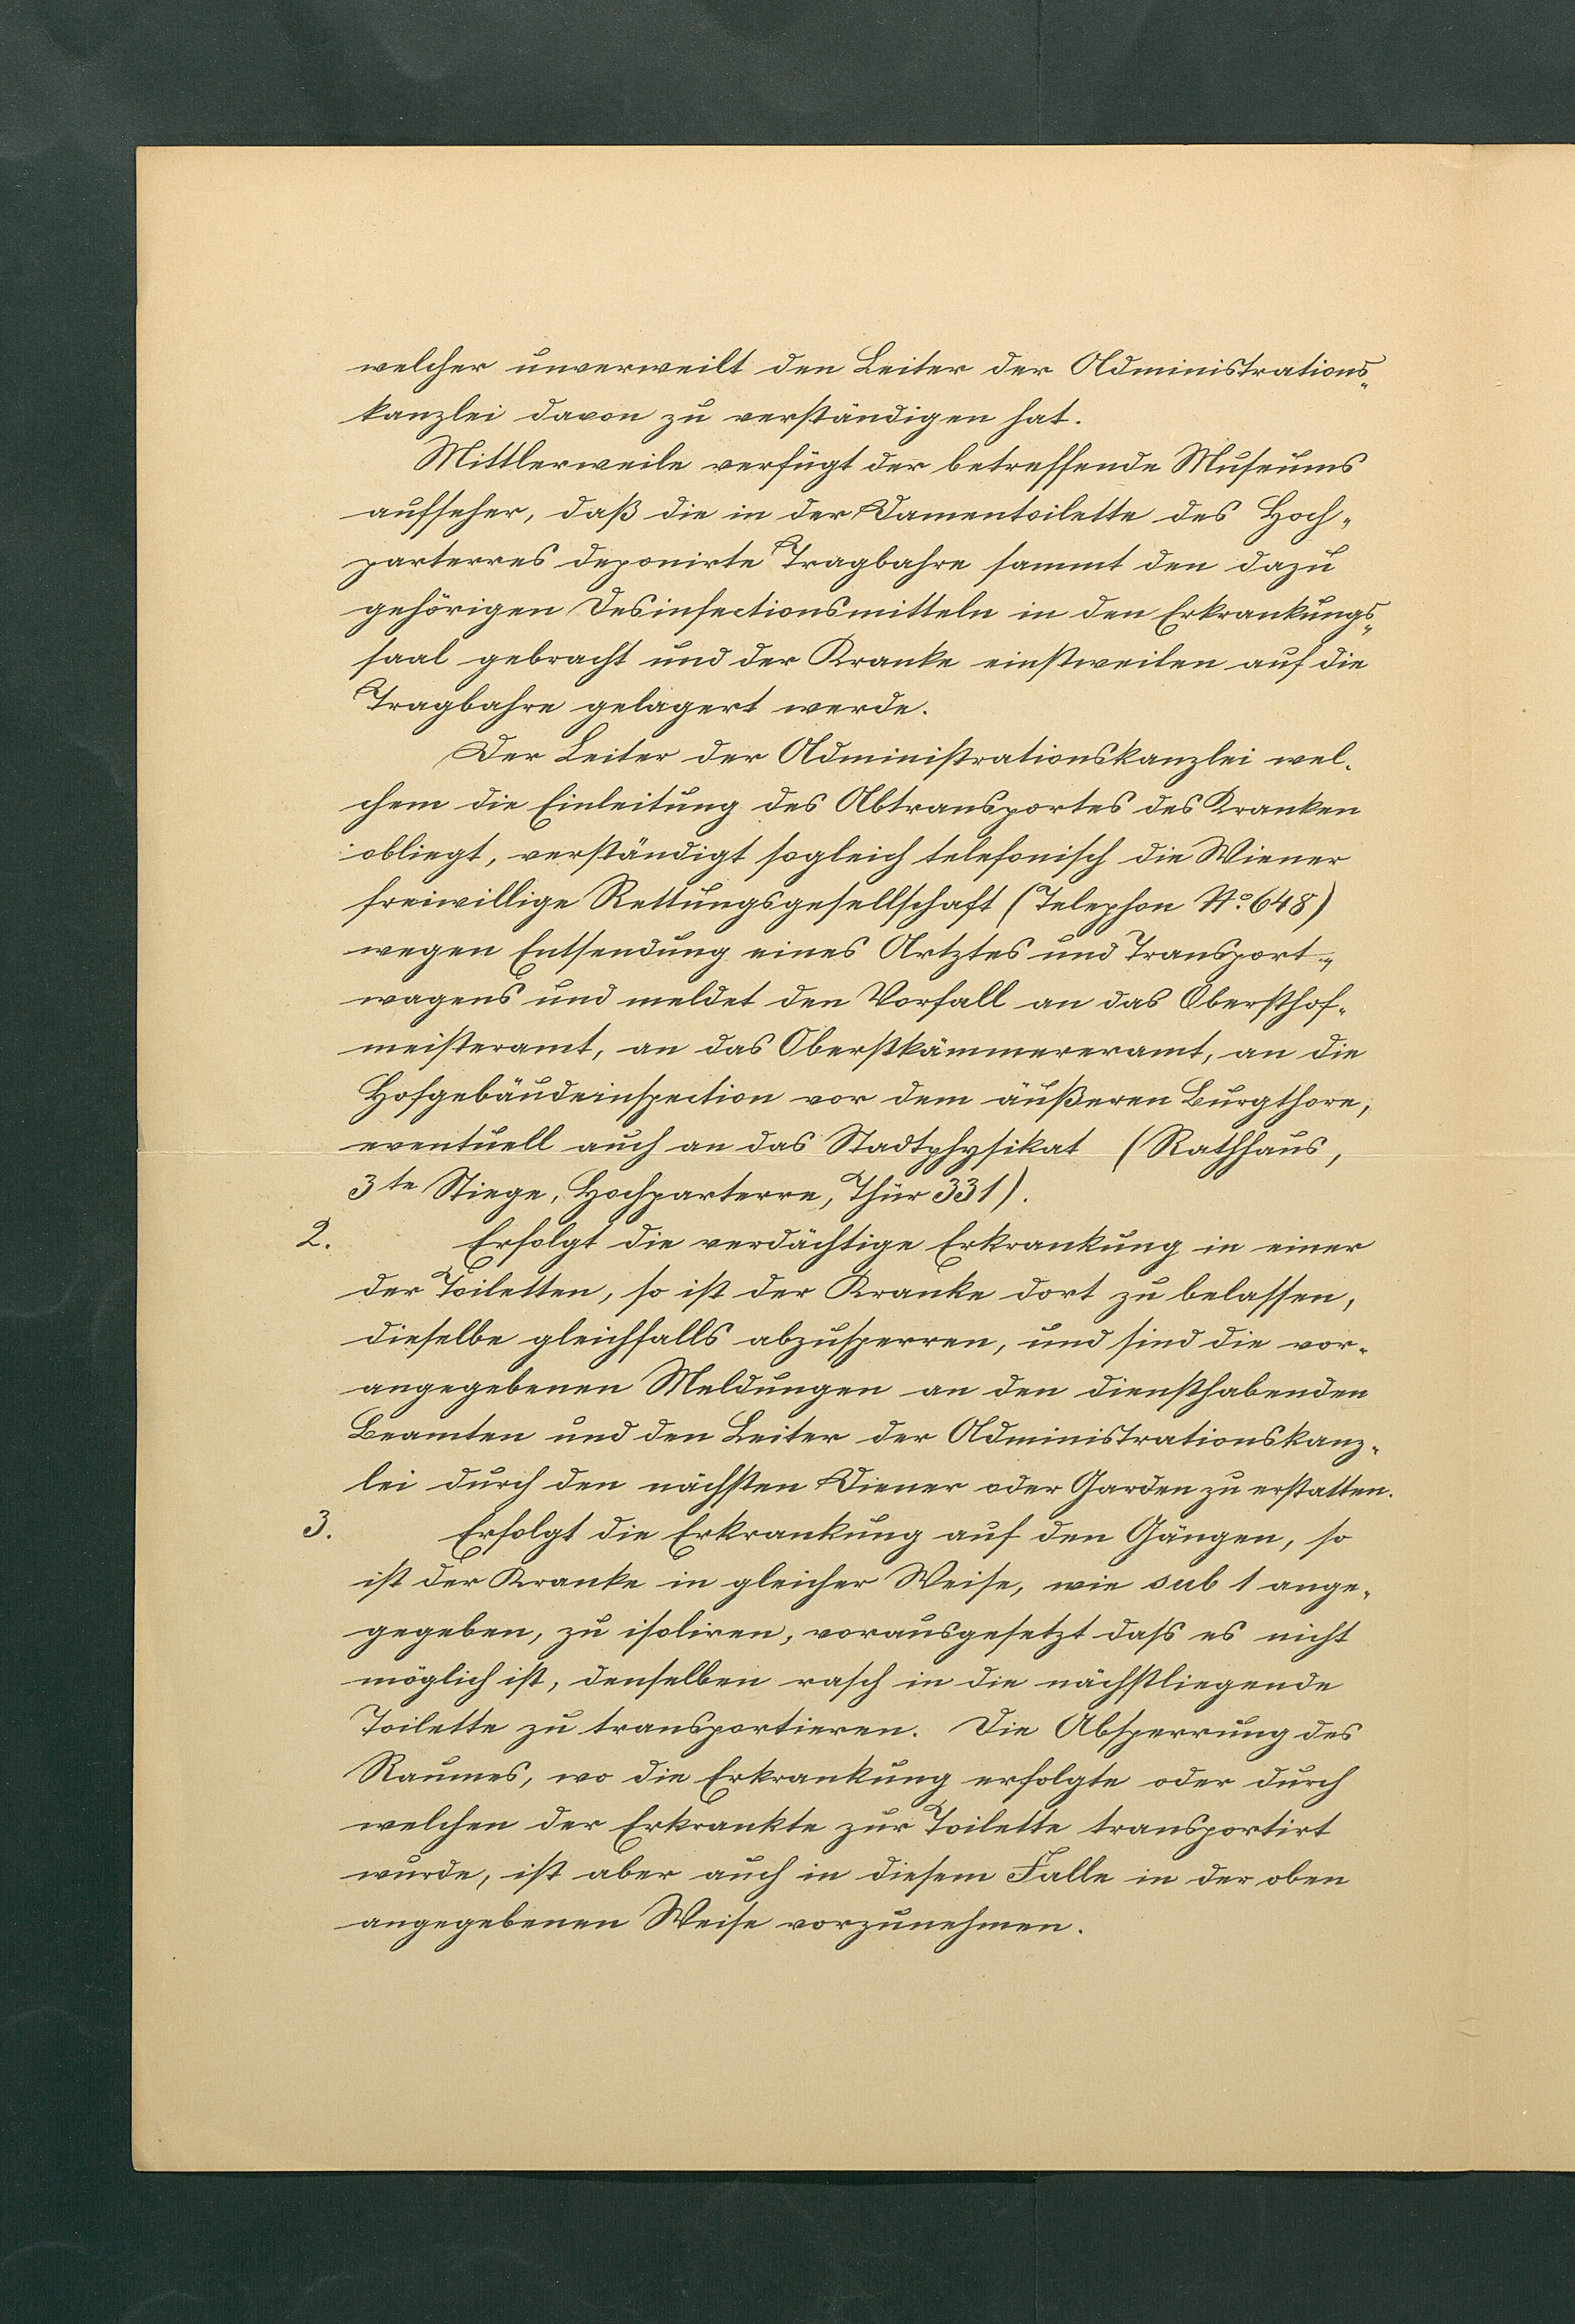 welcher unverweilt den Leiter der Administrations-
kanzlei davon zu verständigen hat.
Mittlerweile verfügt der betreffende Museums
aufseher, daß die in der Damentoilette des Hoch-
parterres deponirte Tragbahre sammt den dazu
gehörigen Desinfectionsmitteln in den Erkrankungs-
saal gebracht und der Kranke einstweilen auf die
Tragbahre gelagert werde.
Der Leiter der Administrationskanzlei wel-
chem die Einleitung des Abtransportes des Kranken
obliegt, verständigt sogleich telefonisch die Wiener
freiwillige Rettungsgesellschaft (Telephon No. 648)
wegen Entsendung eines Artztes und Transport-
wagens und meldet den Vorfall an das Obersthof-
meisteramt, an das Oberstkämmereramt, an die
Hofgebäudeinspection vor dem äußeren Burgthore,
eventuell auch an das Stadtphysikat (Rathhaus,
3te Stiege, Hochparterre, Thür 331).
2. Erfolgt die verdächtige Erkrankung in einer
der Toiletten, so ist der Kranke dort zu belassen,
dieselbe gleichfalls abzusperren, und sind die vor-
angegebenen Meldungen an den diensthabenden
Beamten und den Leiter der Administrationskanz-
lei durch den nächsten Diener oder Garden zu erstatten.
3. Erfolgt die Erkrankung auf den Gängen, so
ist der Kranke in gleicher Weise, wie sub 1 ange-
gegeben, zu isoliren, vorausgesetzt dass es nicht
möglich ist, denselben rasch in die nächstliegende
Toilette zu transportieren. Die Absperrung des
Raumes, wo die Erkrankung erfolgte oder durch
welchen der Erkrankte zur Toilette transportirt
wurde, ist aber auch in diesem Falle in der oben
angegebenen Weise vorzunehmen.